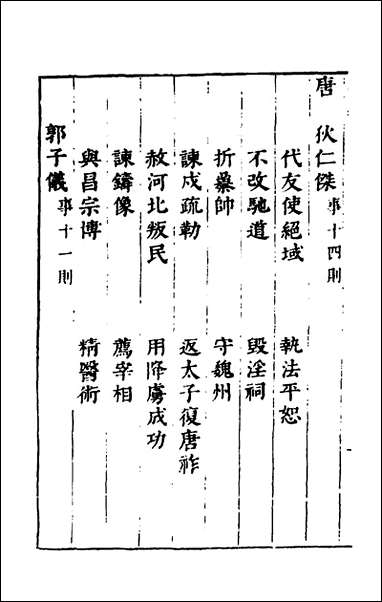 唐 狄仁傑 事十四則
代友使絕域 執法平恕
不改馳道 毀淫祠
折梟帥 守魏州
諫戍疏勒 返太子復唐祚
赦河北叛民 用降虜成功
諫鑄像 薦宰相
與昌宗博 精醫術
郭子儀 事十一則